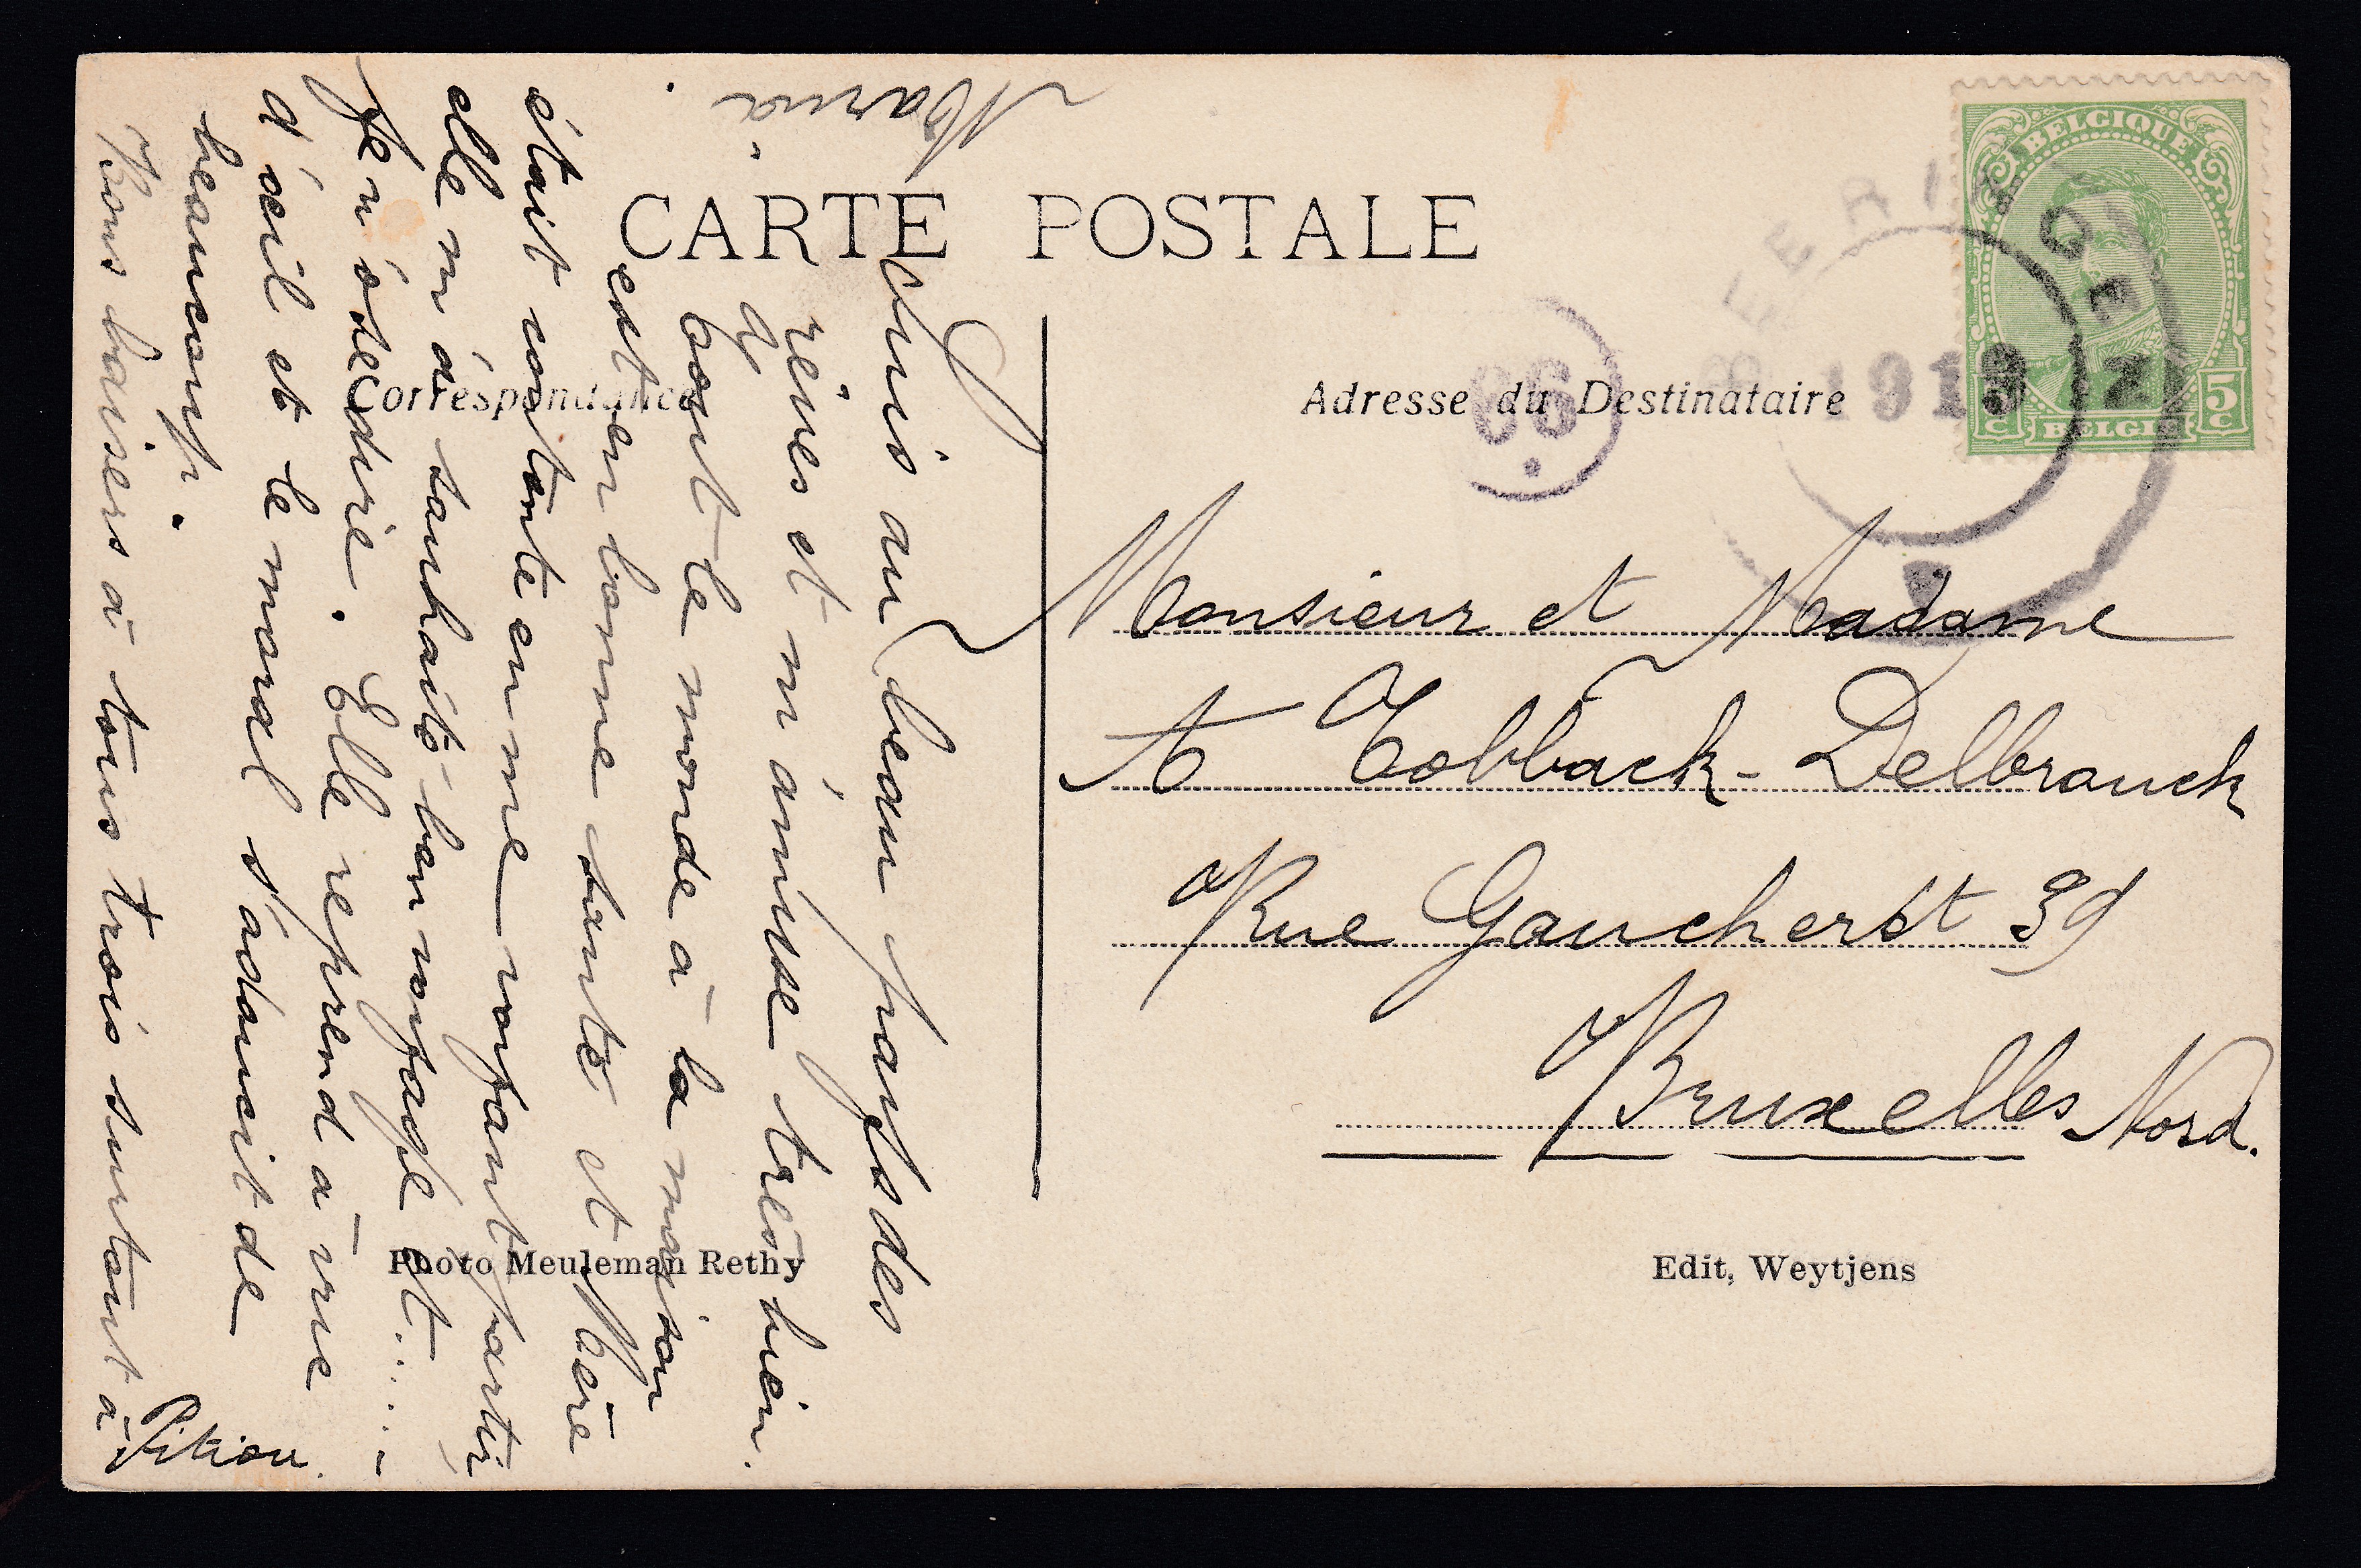 CARTE POSTALE
Correspondance
Adresse du Destinataire
BELGIQUE
5 C
BELGIË
BEERINGEN
1919
Suis au beau pays des
reines et m'amuse très bien.
tout le monde à la maison
est en bonne santé et Mère
était contente en me voyant partir
elle m'a souhaité bon voyage et.....
Je n'ose dire. Elle reprend à vue
d'oeil et le moral s'adoucit de
beaucoup.
Bons baisers à tous trois surtout à
Pitiou.
Maria.
Monsieur et Madame
A Tobback-Delbrouck
Rue Gaucheret 39
Bruxelles Nord.
Photo Meuleman Rethy
Edit, Weytjens